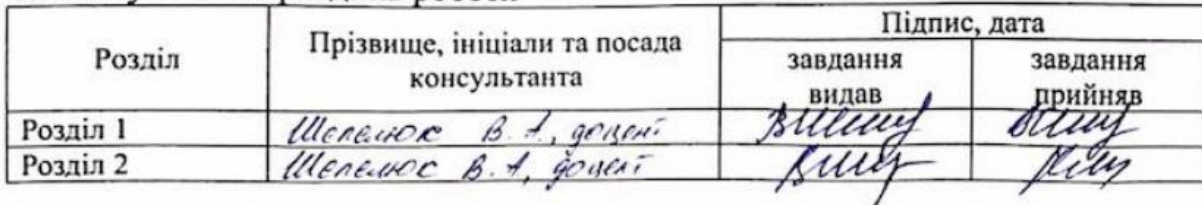 Розділ
Прізвище, ініціали та посада консультанта
Підпис, дата
завдання видав
завдання прийняв
Розділ 1 Шепелюк В. А., доцент
Розділ 2 Шепелюк В. А, доцент